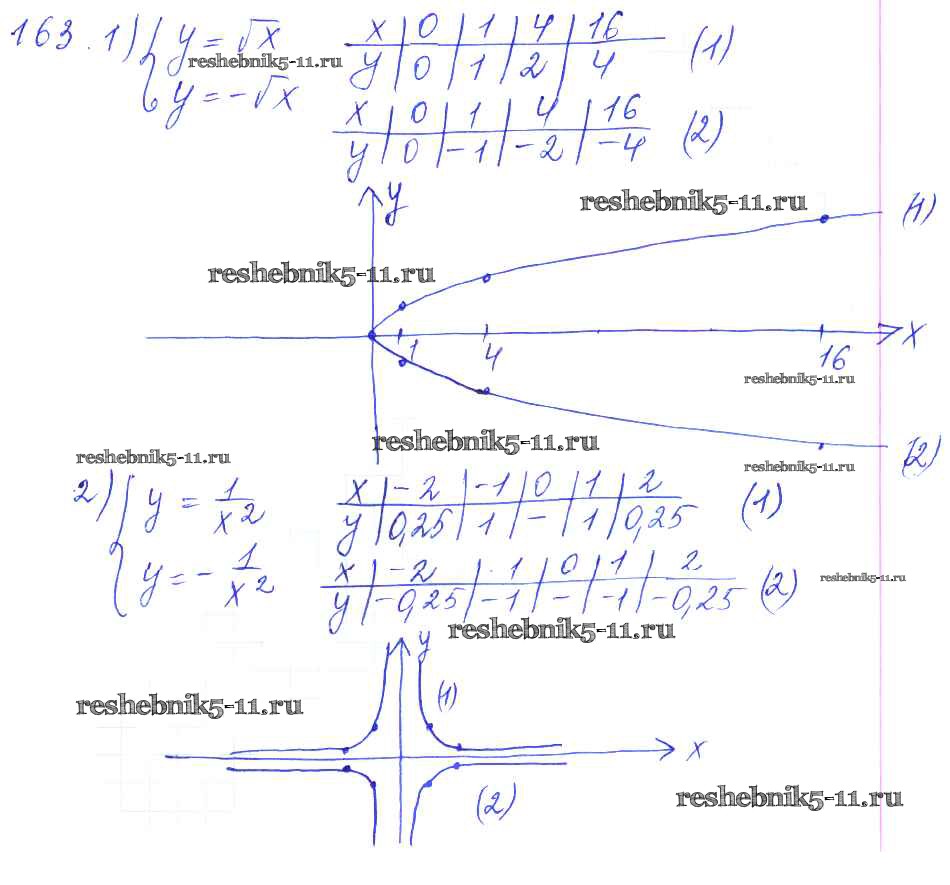 163. 1) { y = √x
x | 0 | 1 | 4 | 16
y | 0 | 1 | 2 | 4 (1)
reshebnik5-11.ru
y = -√x
x | 0 | 1 | 4 | 16
y | 0 | -1 | -2 | -4 (2)
y
reshebnik5-11.ru
(1)
reshebnik5-11.ru
1 4 16 x
reshebnik5-11.ru
reshebnik5-11.ru
reshebnik5-11.ru
reshebnik5-11.ru
(2)
2) { y = 1/x²
x | -2 | -1 | 0 | 1 | 2
y | 0,25 | 1 | - | 1 | 0,25 (1)
y = - 1/x²
x | -2 | -1 | 0 | 1 | 2
y | -0,25 | -1 | - | -1 | -0,25 (2)
reshebnik5-11.ru
reshebnik5-11.ru
y
(1)
reshebnik5-11.ru
x
(2)
reshebnik5-11.ru